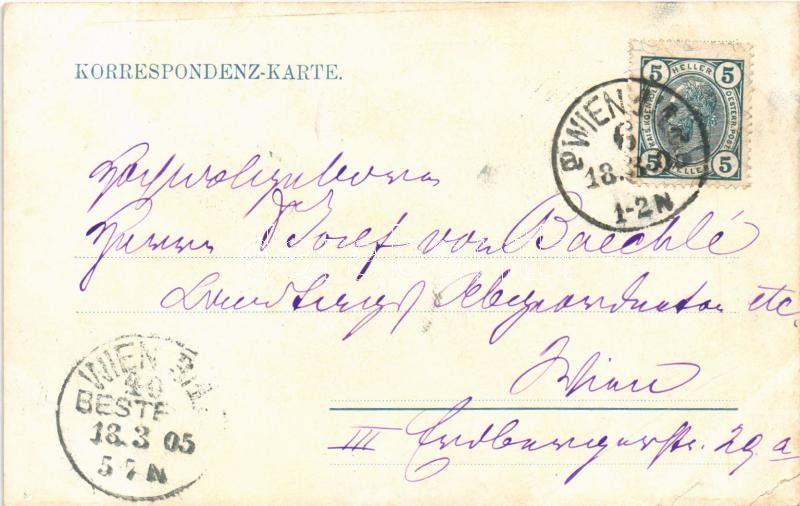 KORRESPONDENZ-KARTE.
5 HELLER 5
KAIS. KOENIGL. OESTERR. POST.
5 HELLER 5
WIEN
6
13.3.05
1-2N
Hochwohlgeboren
Herrn Dr Josef von Baechlé
Landtags Abgeordneter etc.
Wien
III Erdbergerstr. 29a
WIEN
40
BESTE
13.3 05
5-7N